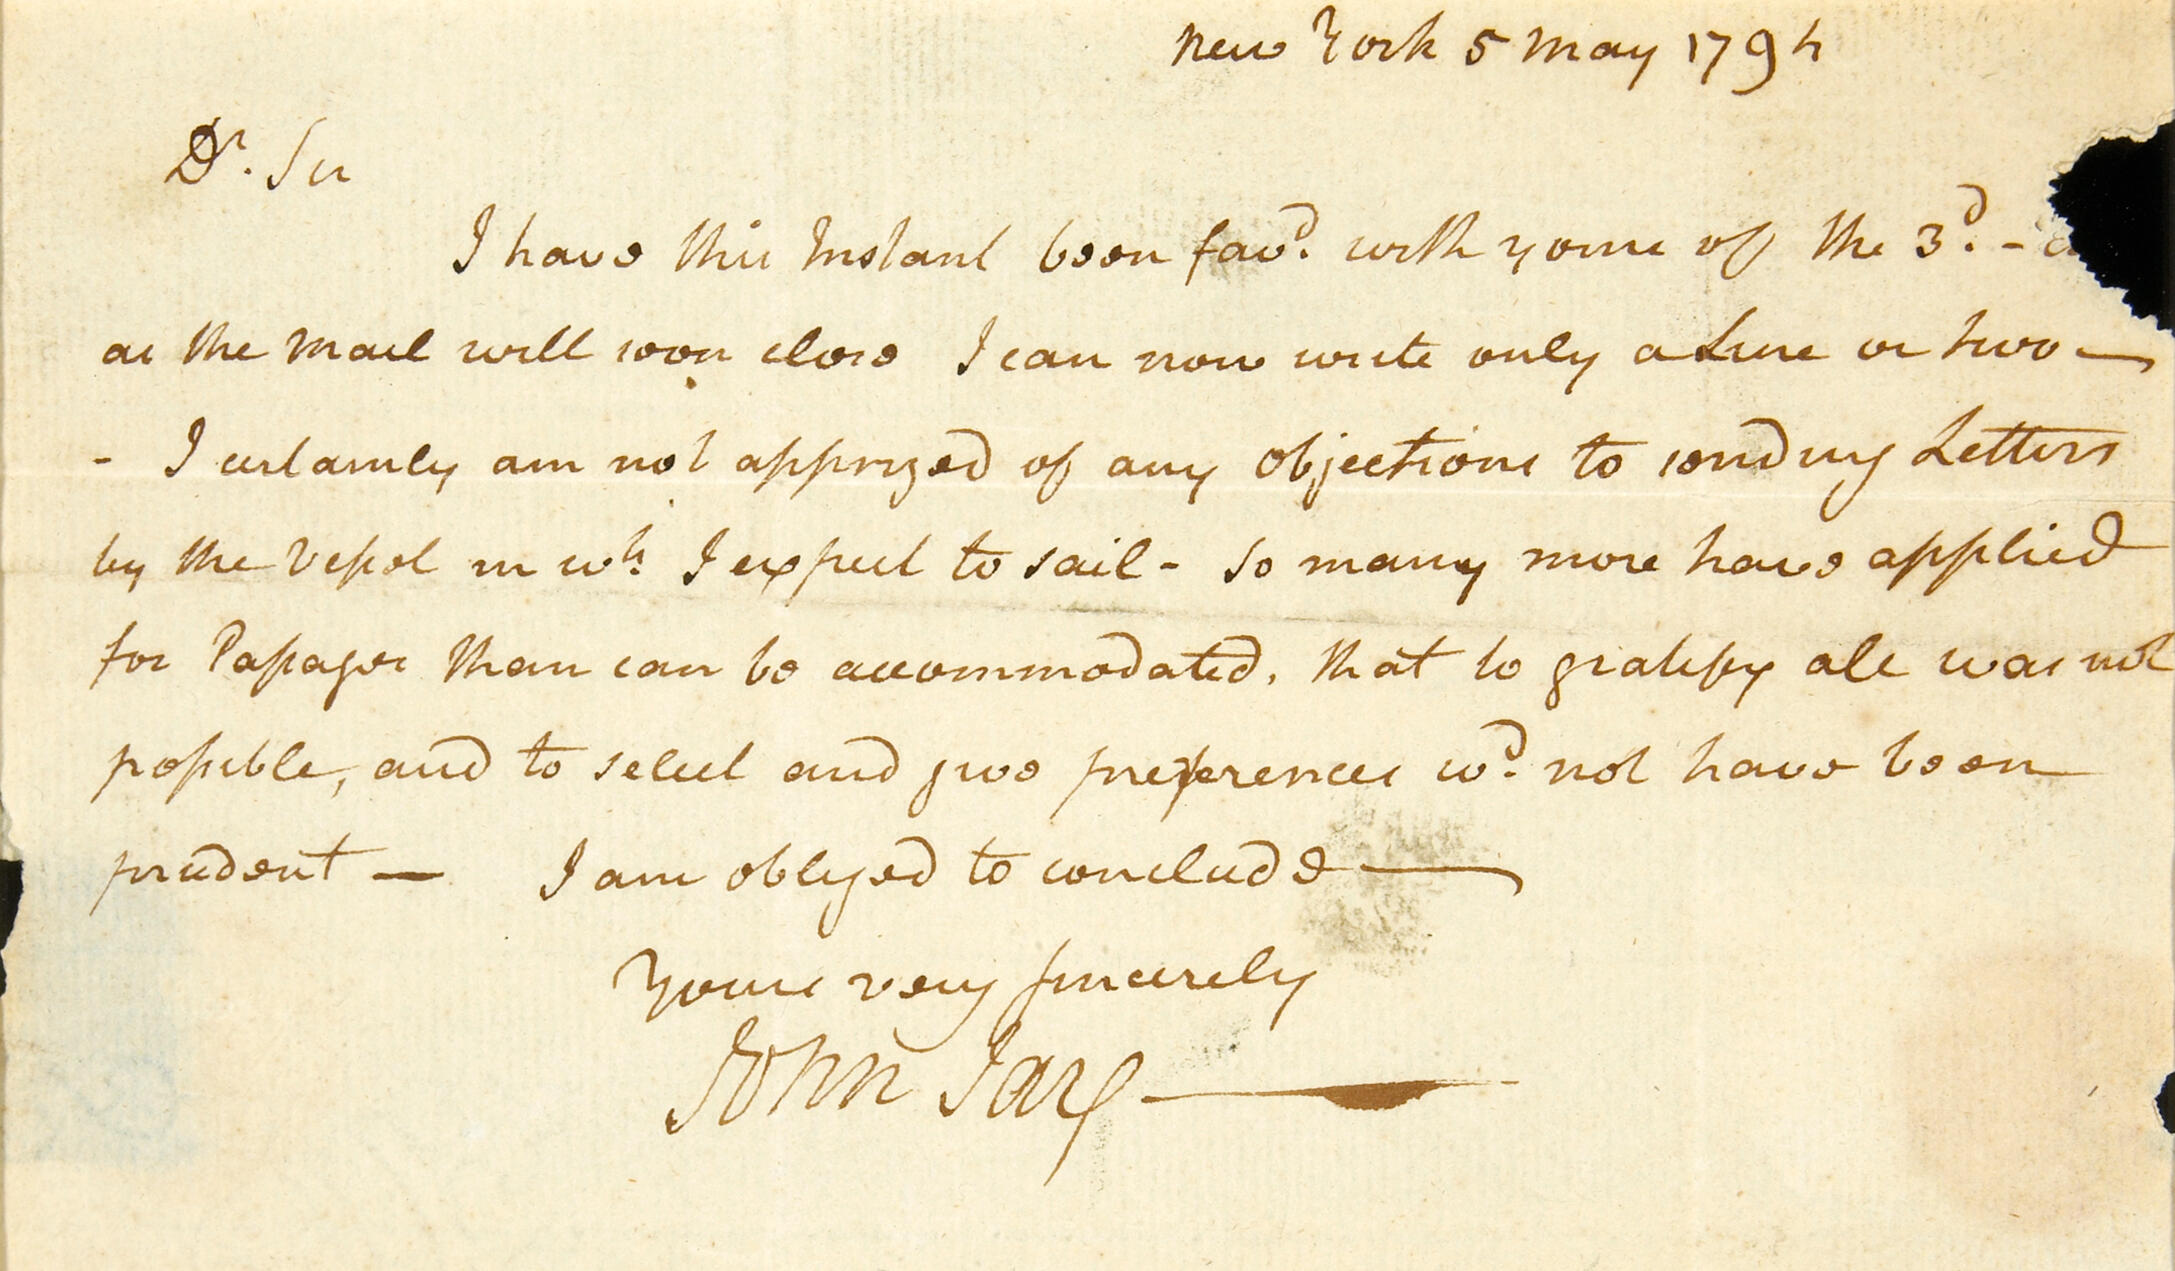 New York 5 May 1794
Dr. Sir
I have this Instant been favd. with yours of the 3d. -
as the mail will soon close I can now write only a Line or two —
- I certainly am not apprized of any objections to sending Letters
by the Vessel in wh. I expect to sail - So many more have applied
for Passages than can be accommodated, that to gratify all was not
possible, and to select and give preferences wd. not have been
prudent — I am obliged to conclude —
Yours very sincerely
John Jay —